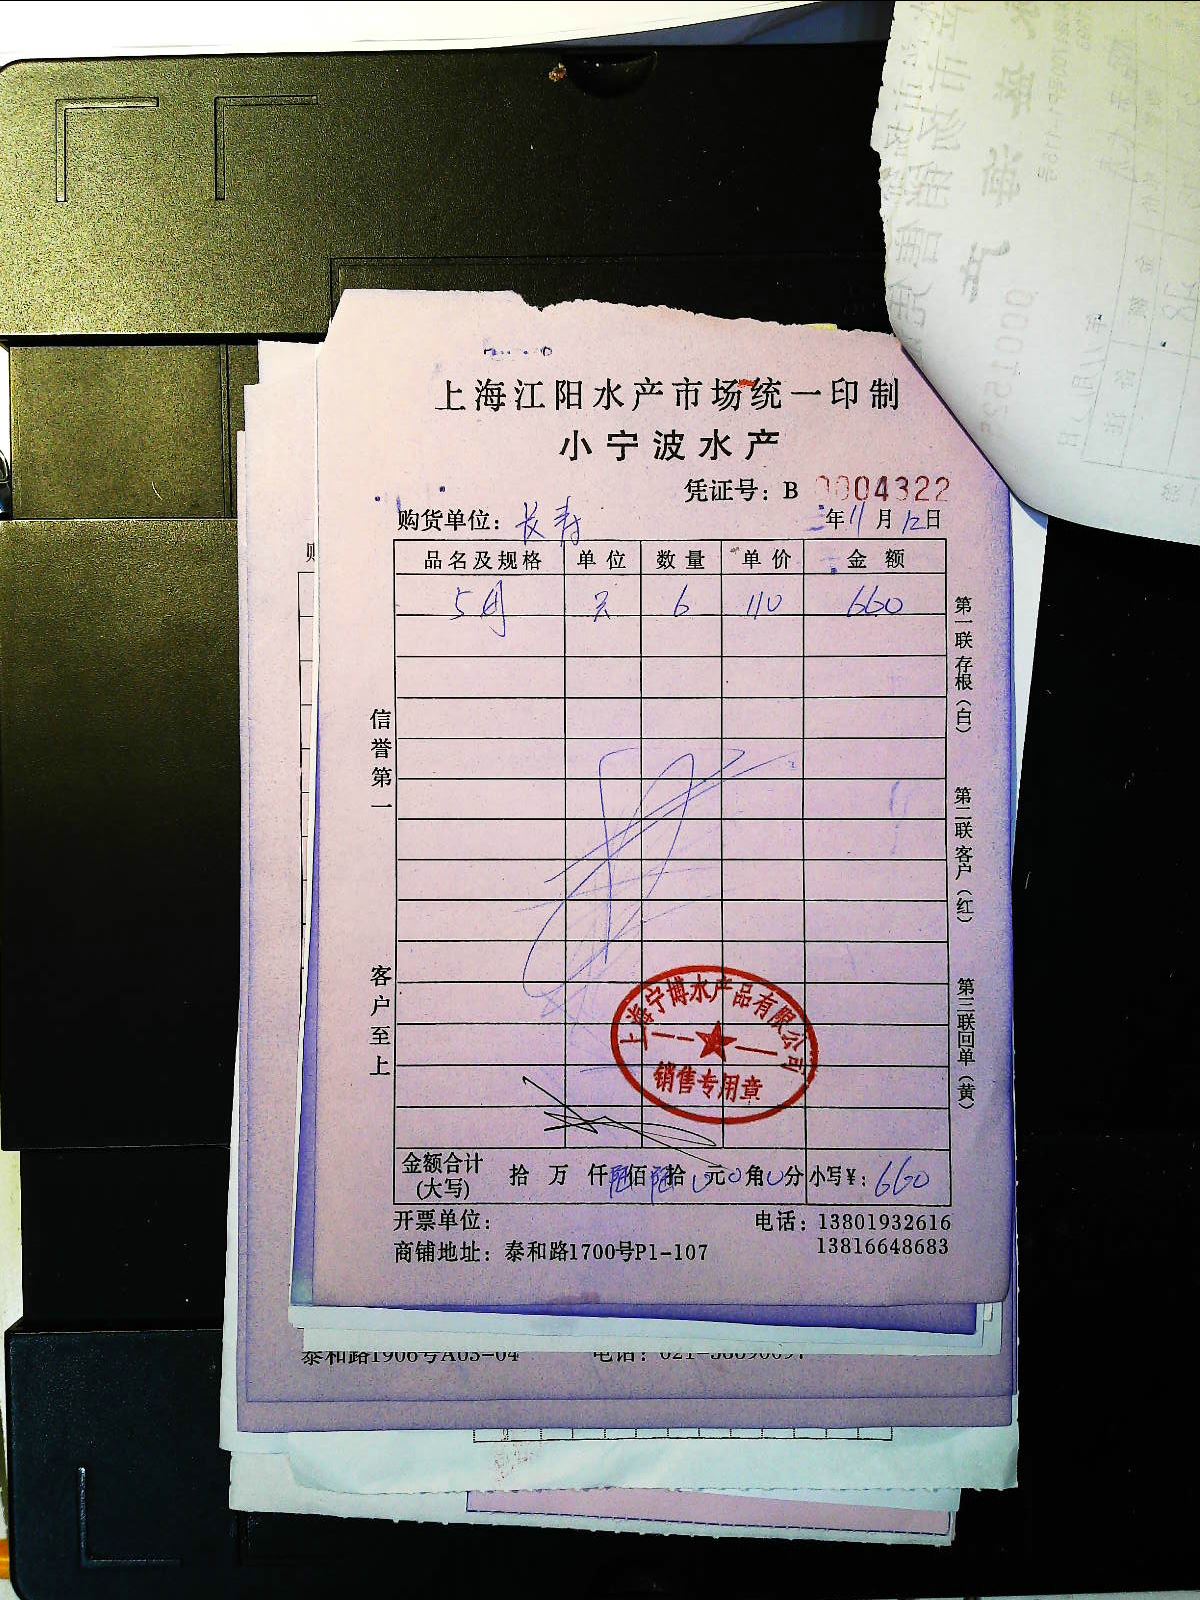 上海江阳水产市场统一印制
小宁波水产
凭证号：B 0004322
购货单位：长寿 年11月12日
品名及规格 单位 数量 单价 金额
6 110 660
第一联存根（白）
第二联客户（红）
第三联回单（黄）
信誉第一
客户至上
上海宁博水产品有限公司
销售专用章
金额合计(大写) 拾 万 仟陆佰陆拾0元0角0分小写¥：660
开票单位：
电话：13801932616
13816648683
商铺地址：泰和路1700号P1-107
泰和路1906号A03-04 电话：021-